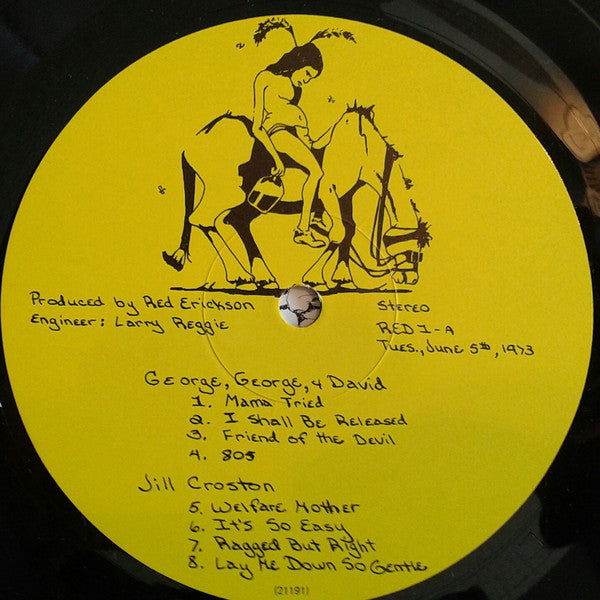 Produced by Red Erickson
Engineer: Larry Reggie
Stereo
RED I-A
Tues., June 5th, 1973
George, George, & David
1. Mama Tried
2. I Shall Be Released
3. Friend of the Devil
4. 805
Jill Croston
5. Welfare Mother
6. It's So Easy
7. Ragged But Right
8. Lay Me Down So Gentle
(21191)